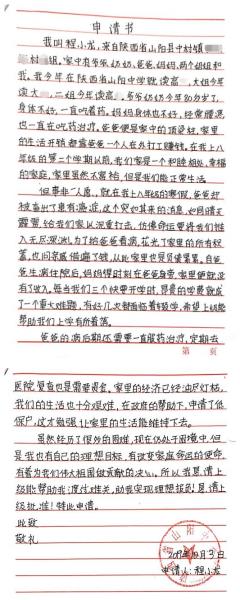 申请书
我叫程小龙，来自陕西省山阳县中村镇
村 组。家中有爷爷奶奶、爸爸、妈妈，两个姐姐和
我。我今年在陕西省山阳中学就读高 ，大姐今年
读大 ，二姐今年读高 。爷爷奶奶今年80多岁了，
身体不好，一直吃着药。妈妈身体也不好，经常腰疼
也一直在吃药治疗，爸爸便是家中的顶梁柱，家里
的生活开销都靠爸爸一个人在外打工赚钱。在我上八
年级的第二个学期以前，我们家是一个和睦相处、幸福
的家庭，家里虽然不富裕，但是我们能正常生活。
但事非人愿，就在我上八年级的寒假，爸爸
被查出了患有 癌症，这个突如其来的消息，如晴天
霹雳，给我们家以沉重打击，仿佛命运要将我们推
入无尽深渊。为了给爸爸看病，花光了家里的所有积
蓄，也问亲戚借遍了钱，从此家里也是负债累累。爸爸
生病住院后，妈妈得时刻在爸爸身旁，家里便就没
有了收入。每当我们三个快要开学时，昂贵的学费就成
了一个重大难题，有好几次都面临着辍学，希望上级能
帮助我们上学有所着落。
爸爸的病后期还需要一直服药治疗，定期去
第 页
医院复查也是需要费 ，家里的经济已经油尽灯枯，
我们的生活也十分艰难，在政府的帮助下，申请了低
保户，这才勉强让家里的生活能维持下去。
虽然经历了很多的困难，现在仍处于困境中，但
是我也有自己的理想目标，有改变家庭命运的使命，
有着为我们伟大祖国做贡献的决心，所以我恳请上
级能帮助我们渡过难关，助我实现理想抱负！恳请上
级批准！特此申请。
此致
敬礼
山阳
2019年 月3日
申请人：程小龙